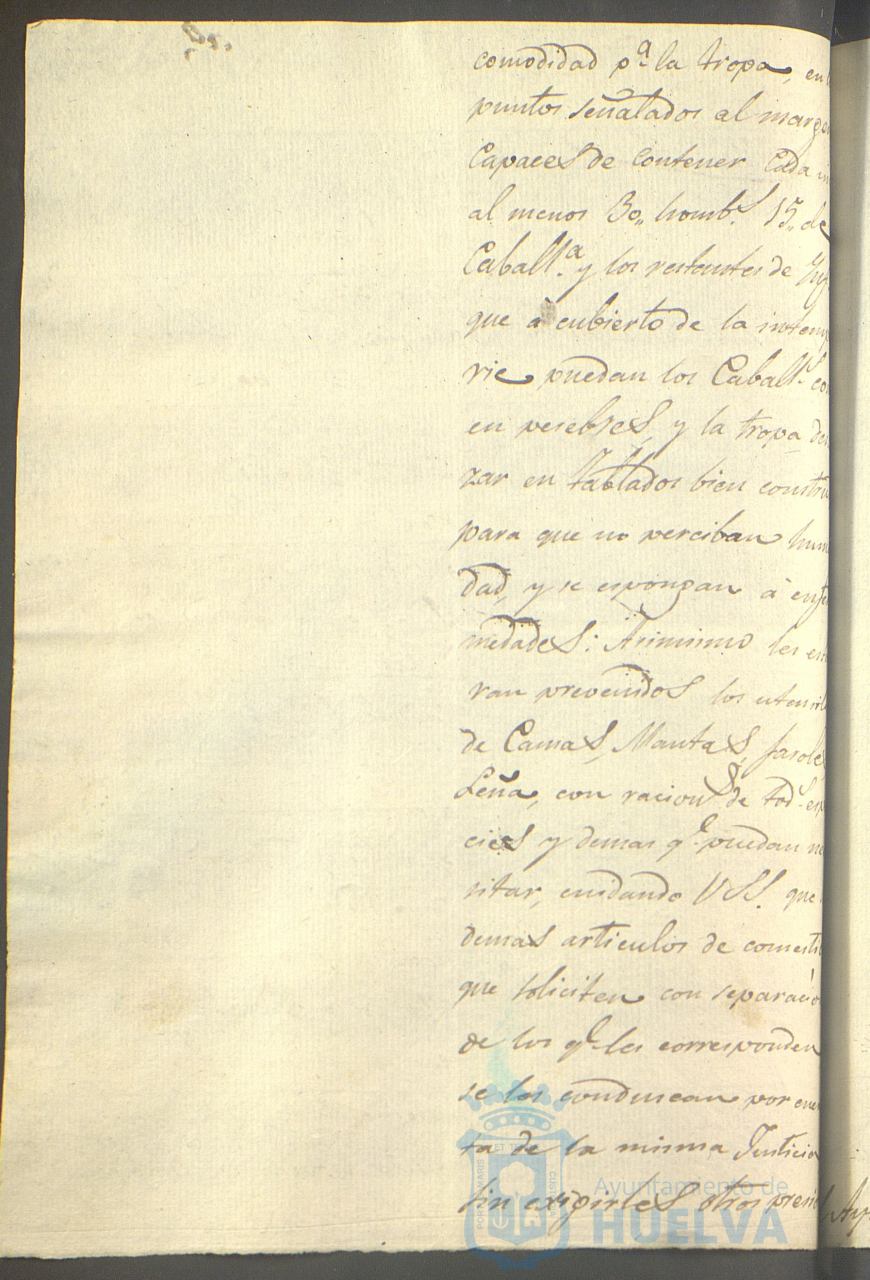 comodidad pª la tropa, en
puntos señalados al marge
Capaces de Contener Cada
al menos 30,, hombs. 15,, de
Caballª. y los restantes de Ynf
que à cubierto de la intemp
rie puedan los Caballs. co
en pesebres, y la tropa des
zar en tablados bien constru
para que no perciban hum
dad, y se espongan à enfe
medades: Asimismo les es
ran prevenidos los utensil
de Camas, Mantas, farole
Leña, con racions de tods espe
cies y demas qe. puedan ne
sitar, cuidando VSS. que
demas articulos de comesti
que soliciten con separació
de los qe. les corresponden
se los conduscan por cuen
ta de la misma Justicia
sin exigirles otros preci
Ayuntamiento de
HUELVA